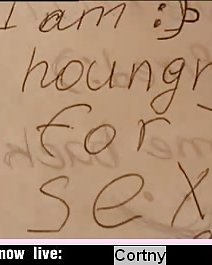 I am :)
houngr
for
sex
now live: Cortny